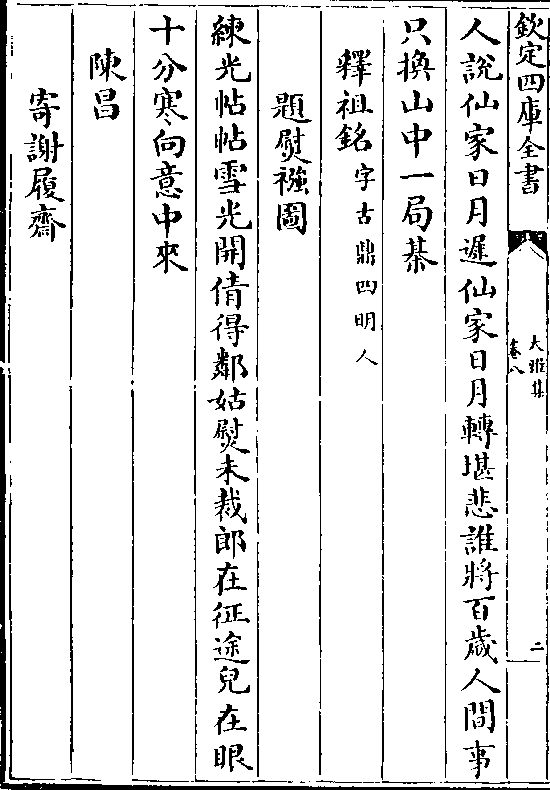 欽定四庫全書
大雅集
卷八
二
人說仙家日月遲仙家日月轉堪悲誰將百歲人間事
只換山中一局棊
釋祖銘字古鼎四明人
題熨襁圖
練光帖帖雪光開倩得鄰姑熨未裁郎在征途兒在眼
十分寒向意中來
陳昌
寄謝履齋